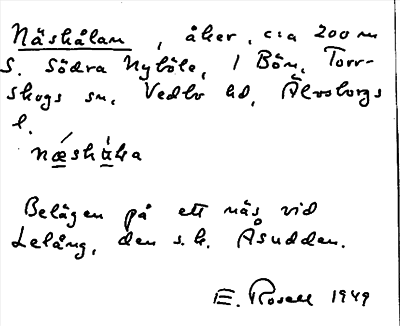 Näshålan, åker, c:a 200 m
S. Södra Nyböle, i Bön, Torr-
skogs sn, Vedbo hd, Älvsborgs
l.
næshåla
Belägen på ett näs vid
Lelång, den s.k. Åsudden.
E. Rosell 1949